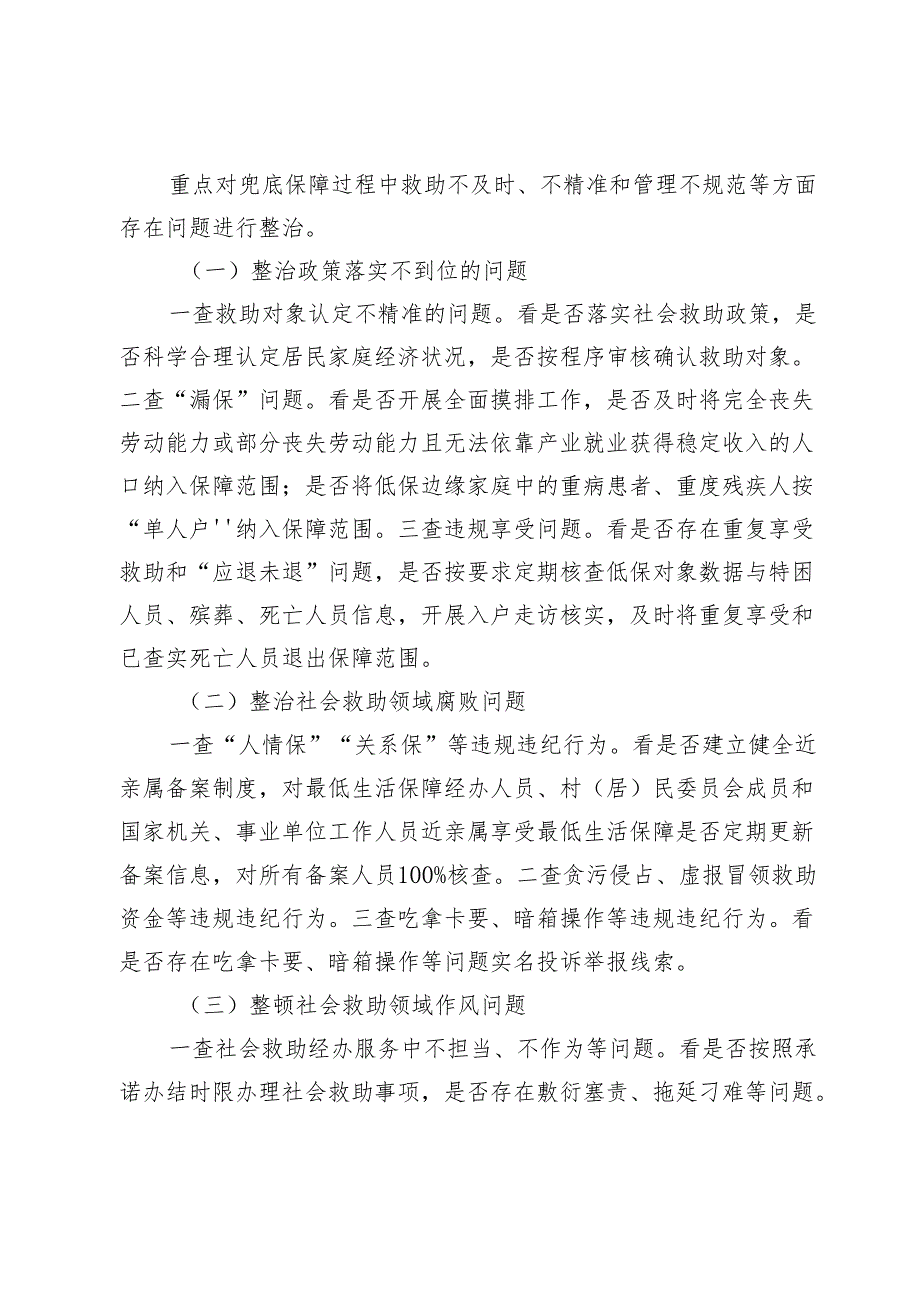 重点对兜底保障过程中救助不及时、不精准和管理不规范等方面
存在问题进行整治。
（一）整治政策落实不到位的问题
一查救助对象认定不精准的问题。看是否落实社会救助政策，是
否科学合理认定居民家庭经济状况，是否按程序审核确认救助对象。
二查“漏保”问题。看是否开展全面摸排工作，是否及时将完全丧失
劳动能力或部分丧失劳动能力且无法依靠产业就业获得稳定收入的人
口纳入保障范围；是否将低保边缘家庭中的重病患者、重度残疾人按
“单人户''纳入保障范围。三查违规享受问题。看是否存在重复享受
救助和“应退未退”问题，是否按要求定期核查低保对象数据与特困
人员、殡葬、死亡人员信息，开展入户走访核实，及时将重复享受和
已查实死亡人员退出保障范围。
（二）整治社会救助领域腐败问题
一查“人情保”“关系保”等违规违纪行为。看是否建立健全近
亲属备案制度，对最低生活保障经办人员、村（居）民委员会成员和
国家机关、事业单位工作人员近亲属享受最低生活保障是否定期更新
备案信息，对所有备案人员100%核查。二查贪污侵占、虚报冒领救助
资金等违规违纪行为。三查吃拿卡要、暗箱操作等违规违纪行为。看
是否存在吃拿卡要、暗箱操作等问题实名投诉举报线索。
（三）整顿社会救助领域作风问题
一查社会救助经办服务中不担当、不作为等问题。看是否按照承
诺办结时限办理社会救助事项，是否存在敷衍塞责、拖延刁难等问题。